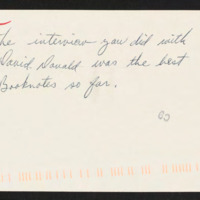 The interview you did with
David Donald was the best
Booknotes so far.